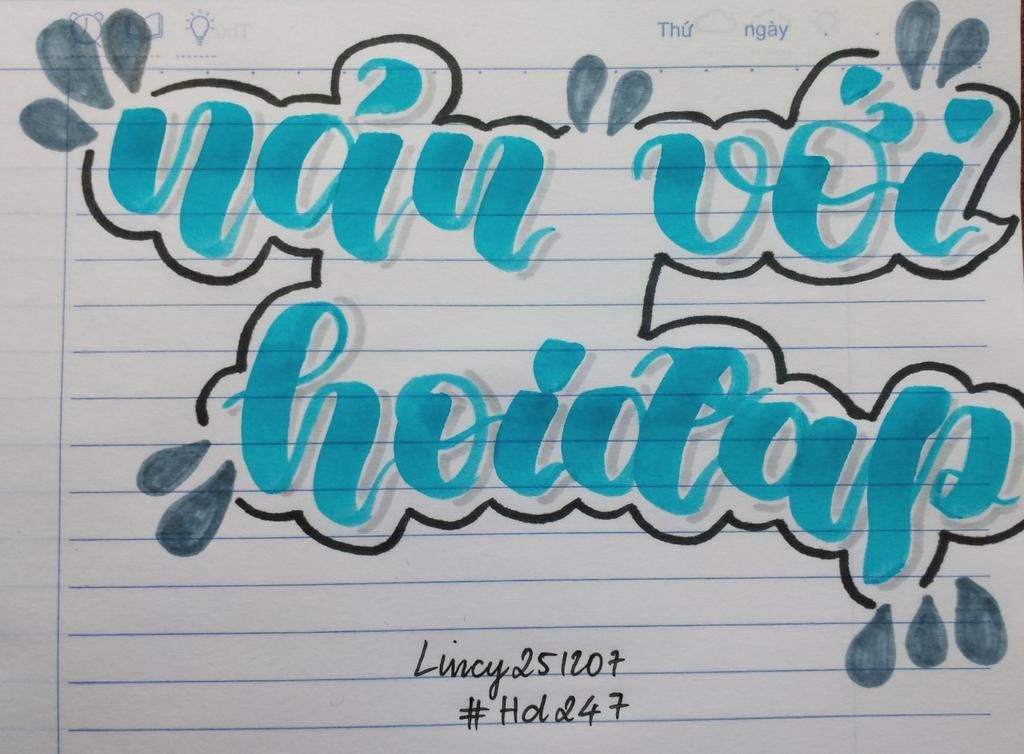 Thứ ngày
nản với
hoidap
Lincy251207
#Hd247